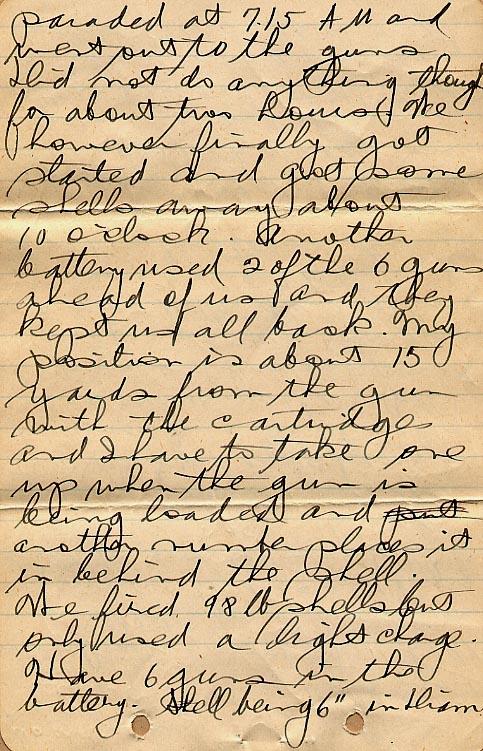 paraded at 7.15 AM and
went out to the guns
Did not do anything though
for about two hours. We
however finally got
started and got some
shells away about
10 o'clock. Another
battery used 2 of the 6 guns
ahead of us and they
kept us all back. My
position is about 15
yards from the gun
with the cartridges
and I have to take one
up when the gun is
being loaded and put
another number places it
in behind the shell.
We fired 98 lb shells but
only used a light charge.
Have 6 guns in the
battery. Shell being 6" in diam